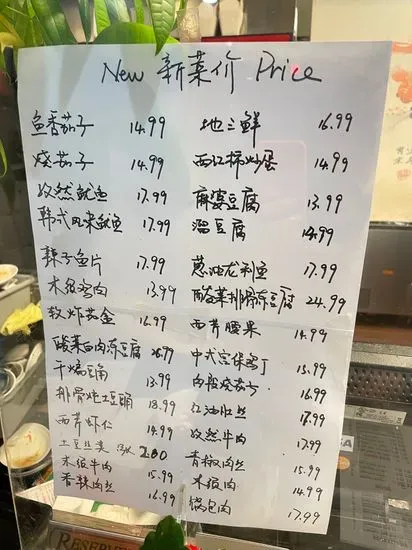 New 新菜价 Price
鱼香茄子 14.99
烧茄子 14.99
孜然鱿鱼 17.99
韩式风味鱿鱼 17.99
辣子鱼片 17.99
木须鸡肉 13.99
软炸茄盒 16.99
酸菜白肉冻豆腐
干烧豆角 13.99
排骨炖土豆豆角 18.99
西芹虾仁 14.99
土豆丝 2.00
木须牛肉 15.99
香辣肉丝 16.99
地三鲜 16.99
西红柿炒蛋 14.99
麻婆豆腐 13.99
溜豆腐 14.99
葱油龙利鱼 17.99
酸菜排骨冻豆腐 24.99
西芹腰果 14.99
中式宫保鸡丁 15.99
肉段烧茄子 16.99
红油肚丝 17.99
孜然牛肉 17.99
青椒肉丝 15.99
木须肉 14.99
锅包肉 17.99
RESERVE